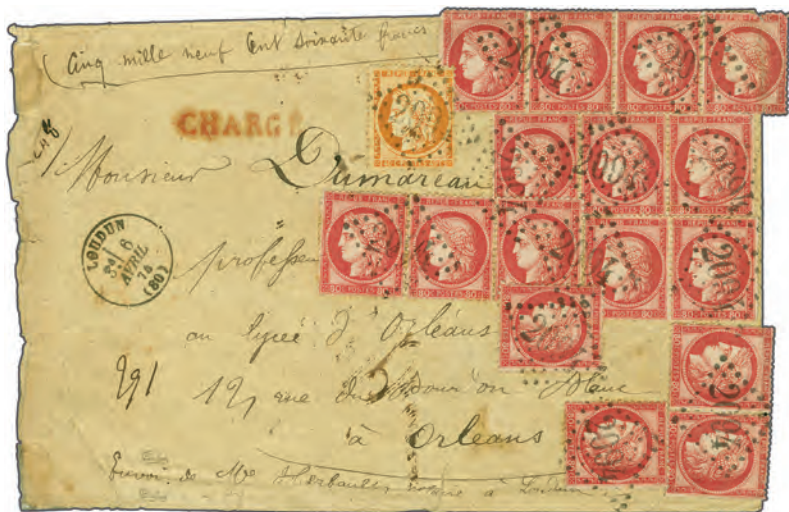 Cinq mille neuf Cent soixante francs
CHARGÉ
Monsieur Dumareau
LOUDUN
6
AVRIL
(80)
professeur
au lycée d'Orléans
291
12, rue du Bourdon Blanc
à Orléans
Envoi de Me Herbault, notaire à Loudun
REPUB FRANC
80C POSTES 80C
2004